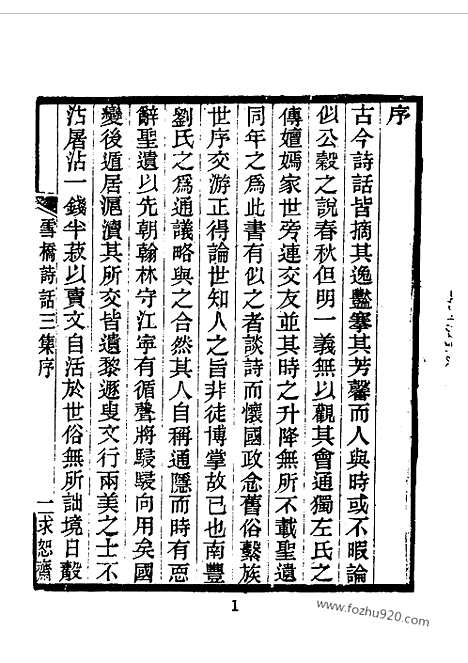 序
古今詩話皆摘其逸豔搴其芳馨而人與時或不暇論
似公穀之說春秋但明一義無以觀其會通獨左氏之
傳嬗嫣家世旁連交友並其時之升降無所不載聖遺
同年之為此書有似之者談詩而懷國政念舊俗繫族
世序交游正得論世知人之旨非徒博掌故已也南豐
劉氏之為通議略與之合然其人自稱通隱而時有恧
辭聖遺以先朝翰林守江寧有循聲將駸駸向用矣國
變後遁居滬瀆其所交皆遺黎遯叟文行兩美之士不
沾屠沽一錢半菽以賣文自活於世俗無所詘境日嗀
雪橋詩話三集序
一
求恕齋
1
www.fozhu920.com